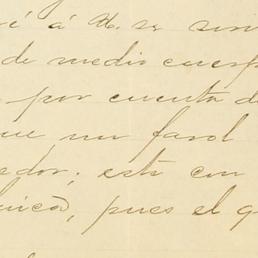 é á V. se sir
de medio cuerp
por cuenta d
que un farol
edor; esta con
lnica, pues el q